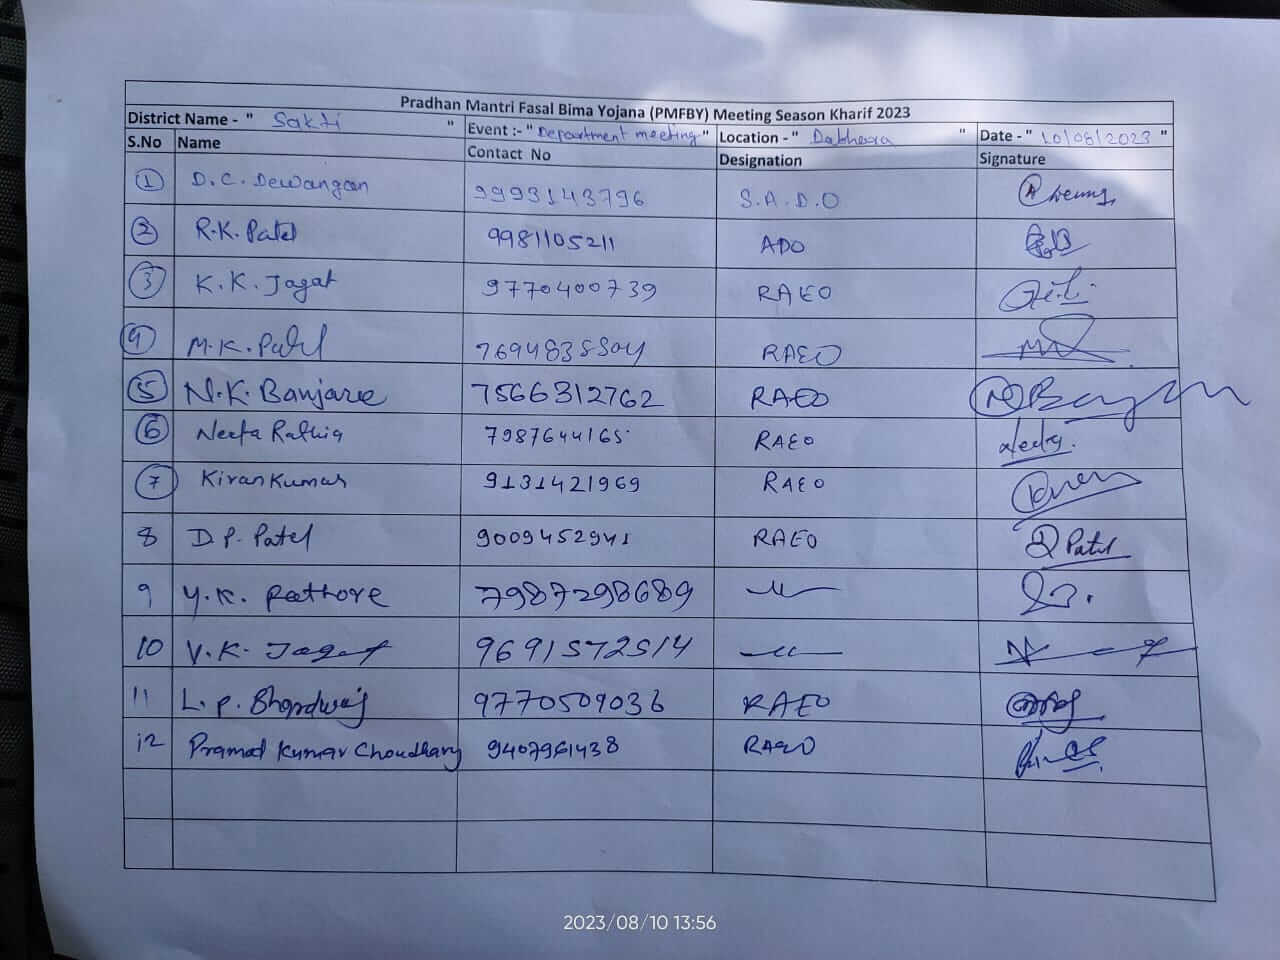 Pradhan Mantri Fasal Bima Yojana (PMFBY) Meeting Season Kharif 2023
District Name - " Sakti " Event :- " Department meeting " Location - " Dabhara " Date - " 10/08/2023 "
S.No Name Contact No Designation Signature
1 D.C. Dewangan 9993143796 S.A.D.O
2 R.K. Patel 9981105211 ADO
3 K.K. Jagat 9770400739 RAEO
4 M.K. Patel 7694835504 RAEO
5 N.K. Banjare 7566312762 RAEO
6 Neeta Rathia 7987644165 RAEO
7 Kiran Kumar 9131421969 RAEO
8 D.P. Patel 9009452941 RAEO Patel
9 Y.K. Rathore 7987298689 -"-
10 V.K. Jagat 9691572514 -"-
11 L.P. Bhardwaj 9770509036 RAEO
12 Pramod Kumar Choudhary 9407961438 RAEO
2023/08/10 13:56